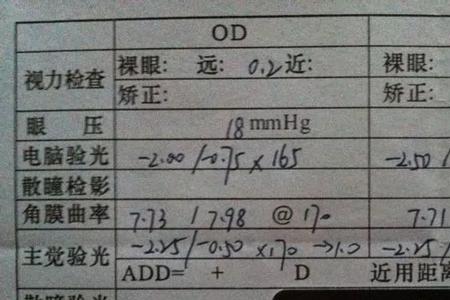 OD
视力检查 裸眼: 远: 0.2 近: 裸眼:
矫正: 矫正:
眼 压 18 mmHg
电脑验光 -2.00 /-0.75 × 165 -2.50 /
散瞳检影
角膜曲率 7.73 / 7.98 @ 170 7.71
主觉验光 -2.25/-0.50 ×170 →1.0 -2.25/
ADD= + D 近用距离
散瞳验光